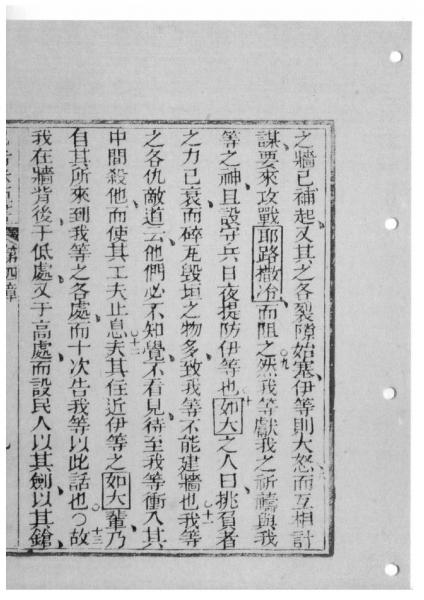 之牆已補起又其之各裂隙始塞伊等則大怒而互相計
謀要來攻戰耶路撒冷而阻之○九然我等獻我之祈禱與我
等之神且設守兵日夜提防伊等也○十如大之人曰挑負者
之力已衰而碎瓦毀垣之物多致我等不能建牆也○十一我等
之各仇敵道云他們必不知覺不看見待至我等衝入其
中間殺他而使其工夫止息○十二夫其住近伊等之如大輩乃
自其所來到我等之各處而十次告我等以此話也○十三故
我在牆背後于低處又于高處而設民人以其劍以其鎗
第四章